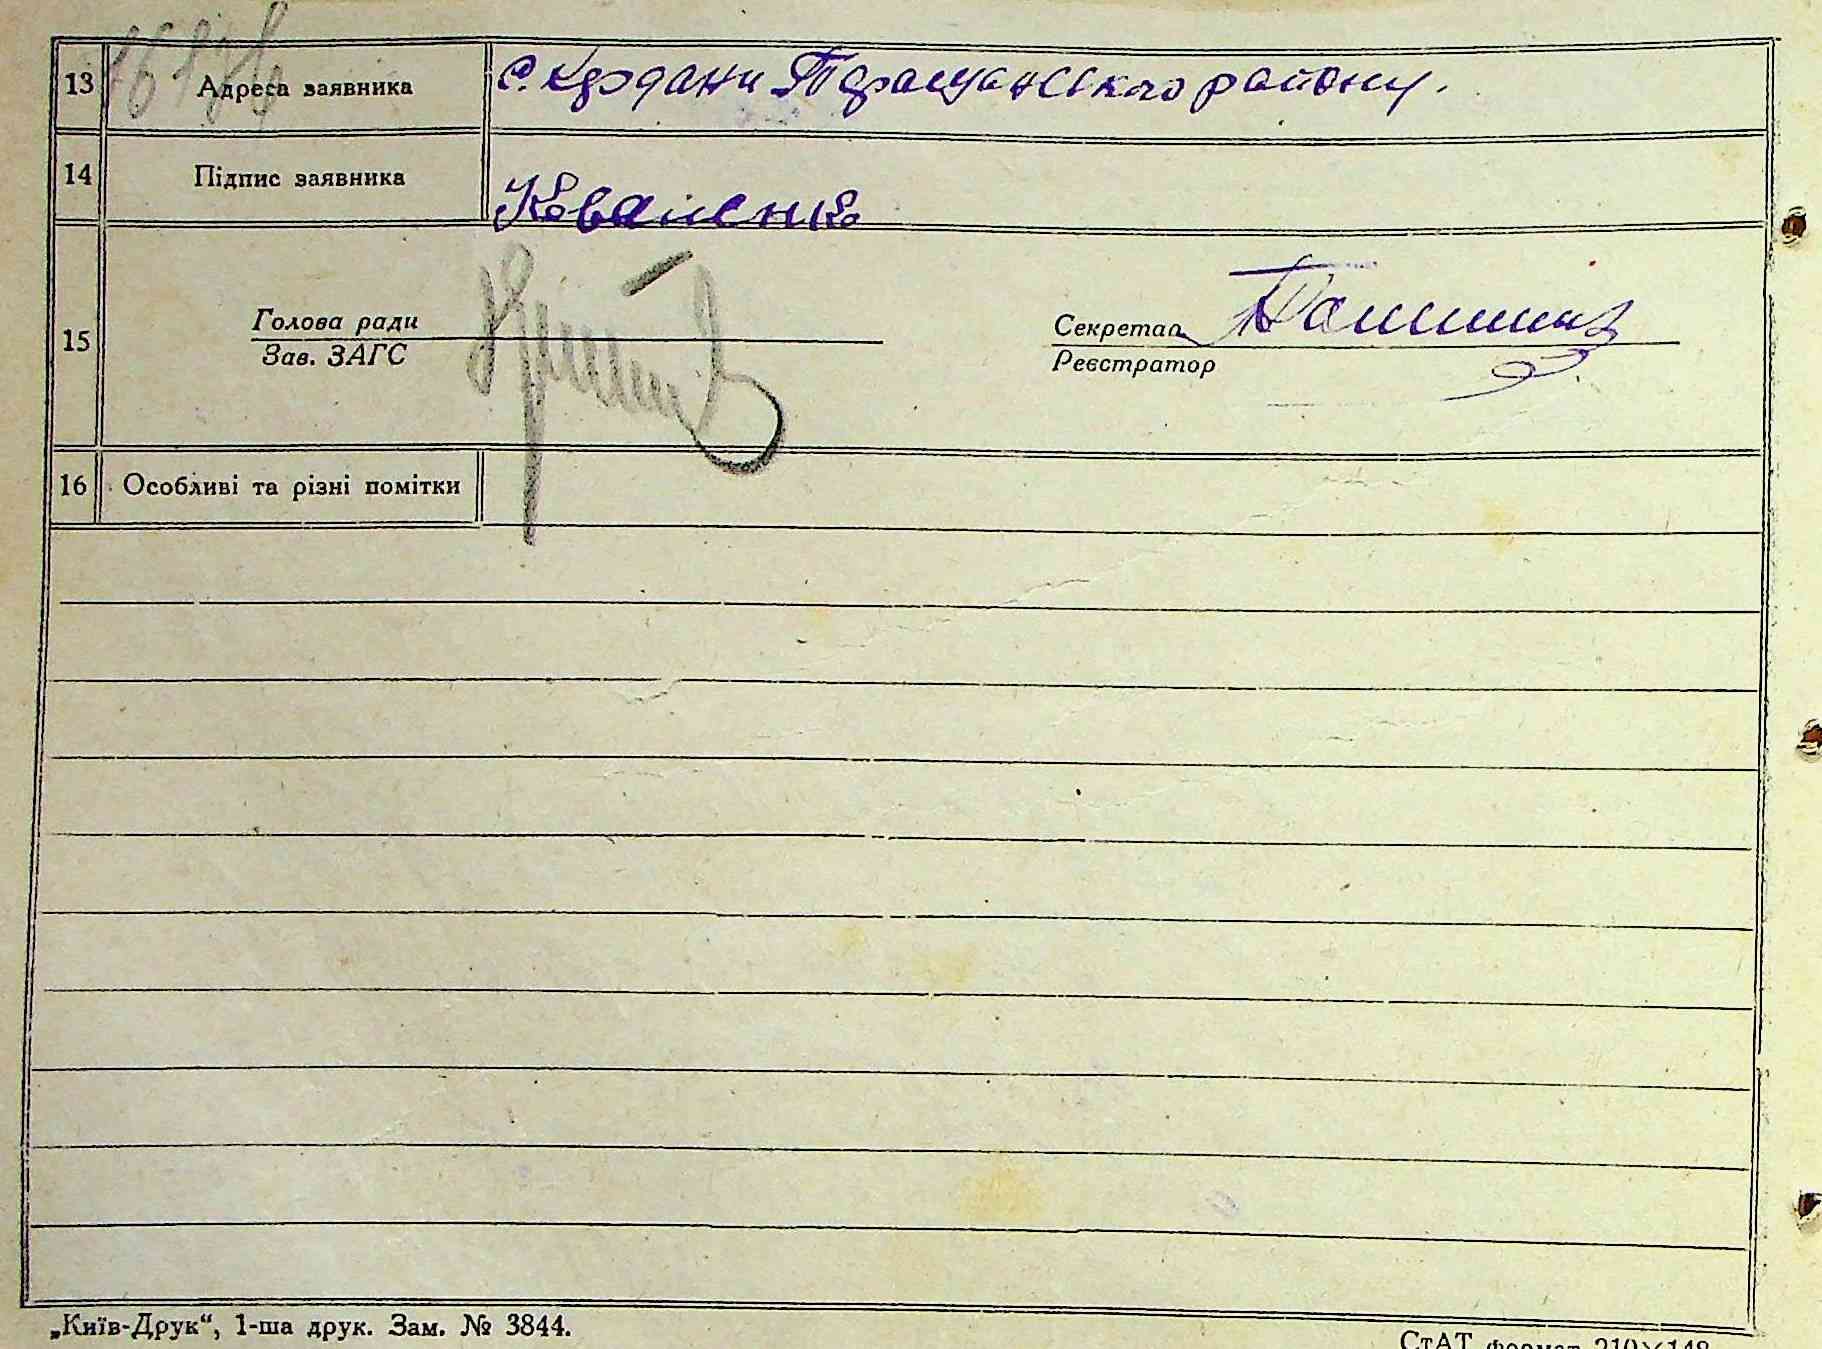 13 Адреса заявника с. Крдани Таращанського району.
14 Підпис заявника Коваленко
15 Голова ради Секретар
Зав. ЗАГС Реєстратор
16 Особливі та різні помітки
„Київ-Друк“, 1-ша друк. Зам. № 3844.
СтАТ формат 210×148